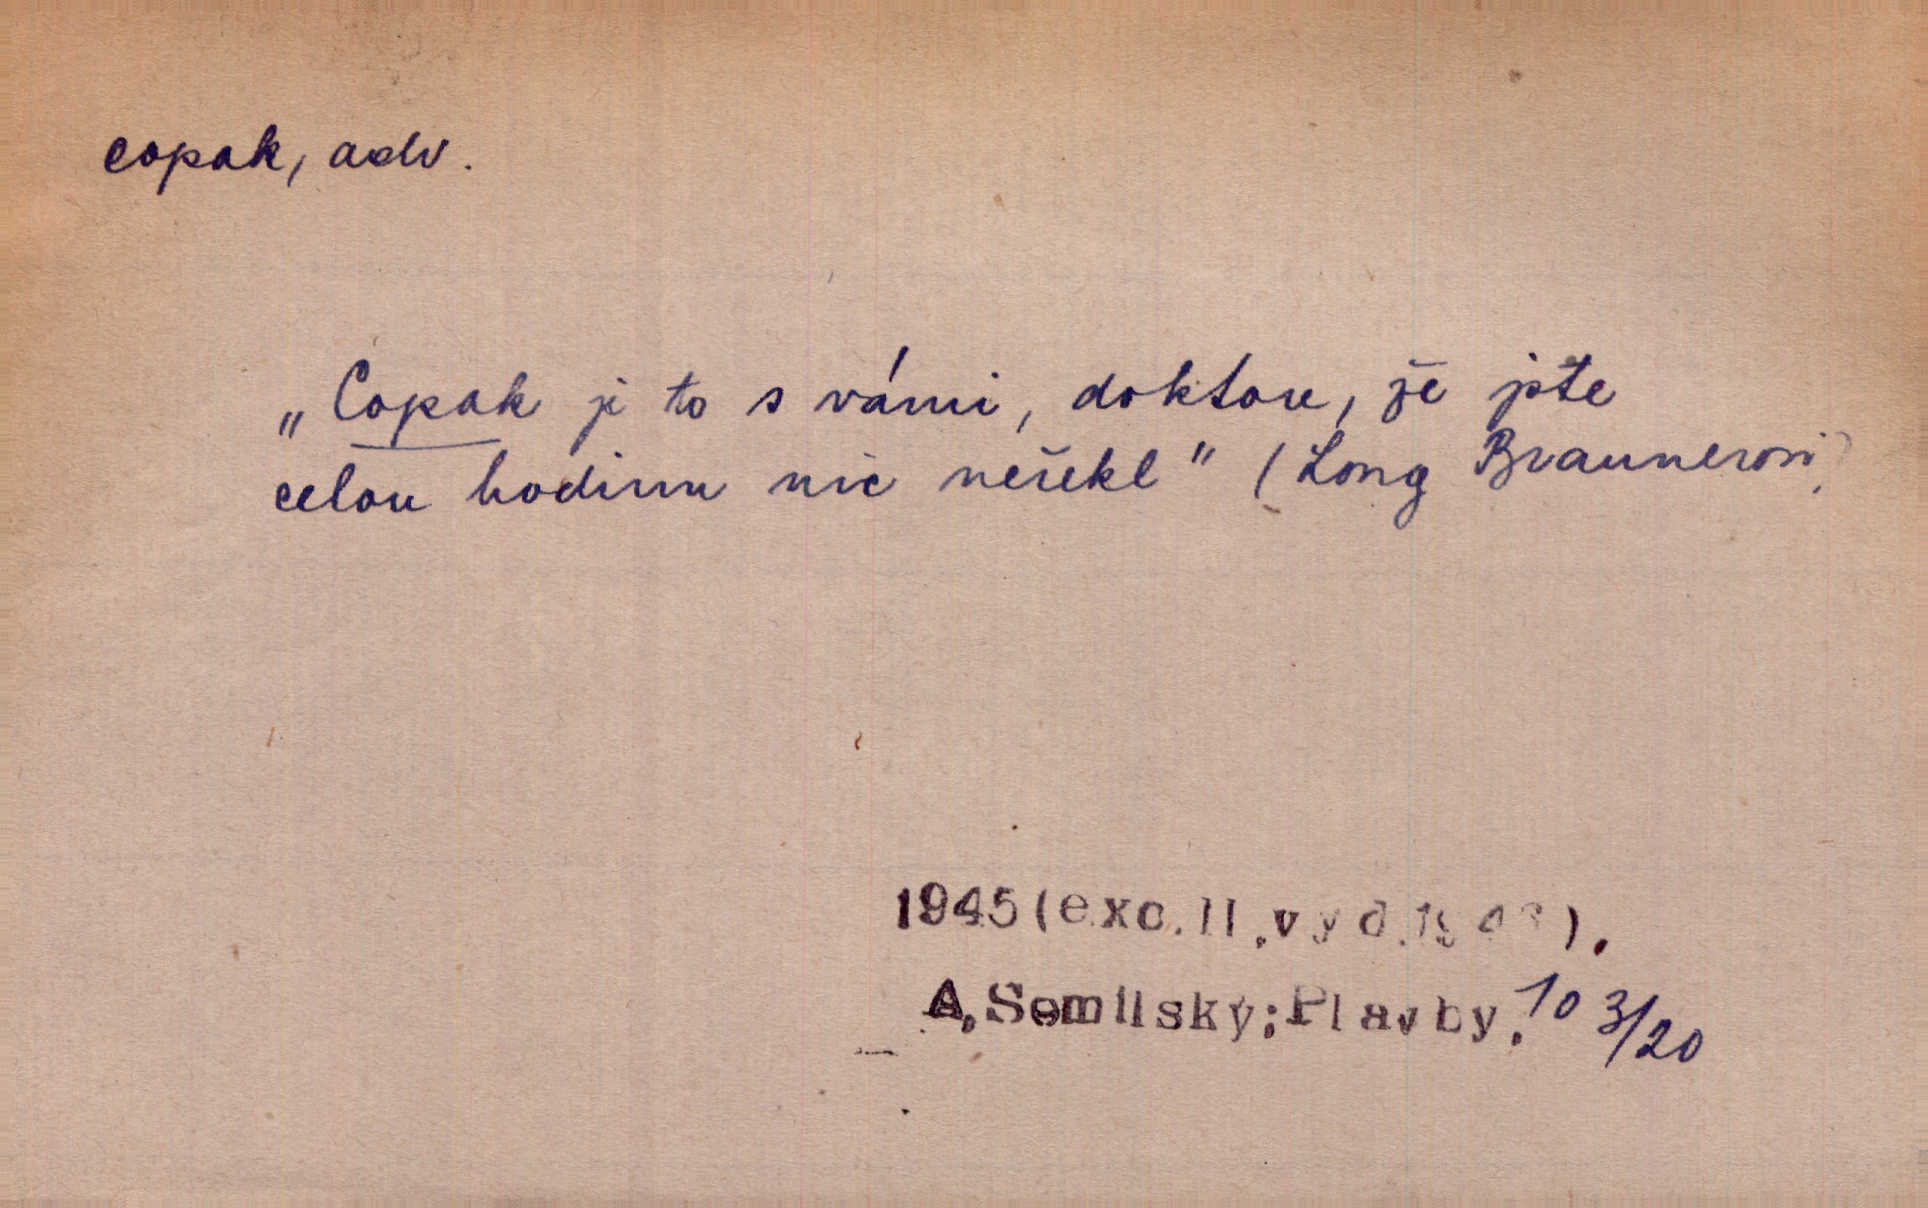 copak, adv.
„Copak je to s vámi, doktore, že jste
celou hodinu nic neřekl" (Long Braunerovi)
1945(exc.II.vyd.
A.Semilský:Plavby.10 3/20